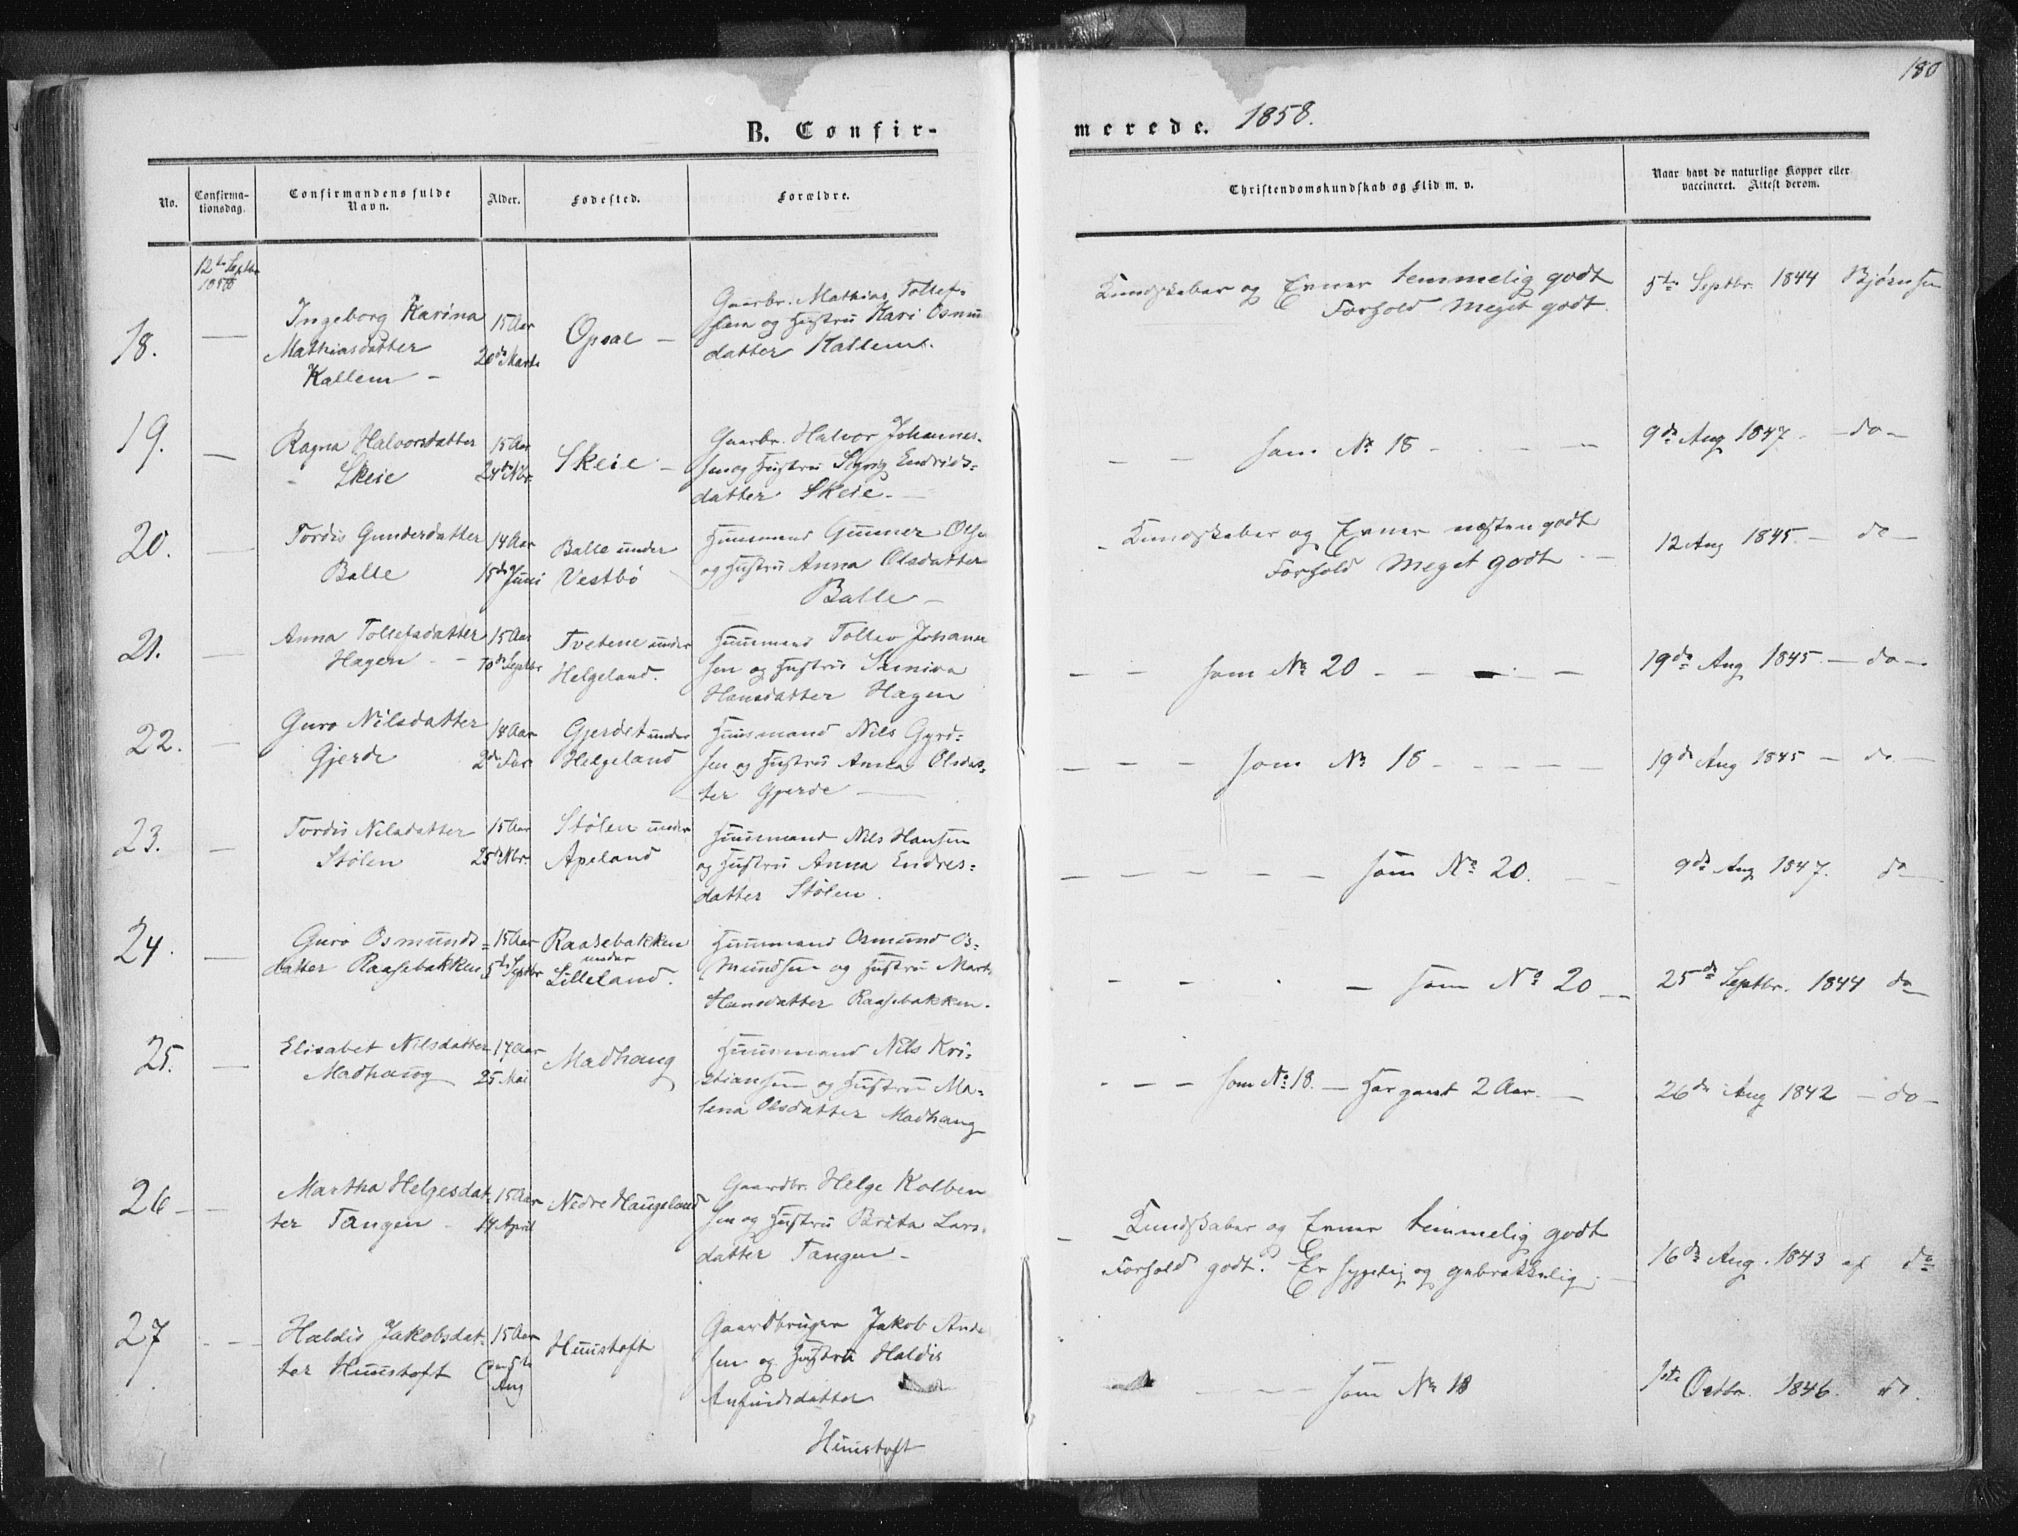 180
B. Confirmerede. 1858.
No.
Confirmationsdag.
Confirmandens fulde Navn.
Alder.
Fødested.
Forældre.
Christendomskundskab og Flid m. v.
Naar havt de naturlige Kopper eller vaccineret. Attest derom.
12te Septbr
1858
18. —
Ingeborg Karina
Mathiasdatter
Kallem —
15 Aar
20de Marts
Opsal —
Gaarbr. Mathias Tollef-
sen og Hustru Kari Osmu
datter Kallem.
Kundskaber og Evner temmelig godt
Forhold Meget godt.
5te Septbr. 1844 Bjørnsen
19. —
Ragna Halvorsdatter
Skeie
15 Aar
24de Nbr
Skeie —
Gaarbr. Halvor Johannes-
sen og Hustru Endrids-
datter Skeie. —
— — som No 18 — — —
9de Aug 1847. — do —
20. —
Tordis Gunderdatter
Balle
14 Aar
15de Juni
Balle under
Vestbø
Huusmand Gunner Olse
og Hustru Anna Olsdatter
Balle —
Kundskaber og Evner næsten godt
Forhold Meget godt —
12 Aug 1845. — do —
21. —
Anna Tollefsdatter
Hagen —
15 Aar
10de Septbr
Tvetene under
Helgeland.
Huusmand Tollev Johanne
sen og Hustru Suniva
Hansdatter Hagen
— — som No 20 — — — —
19de Aug 1845. — do —
22. —
Guro Nilsdatter
Gjerde
18 Aar
2de Fer
Gjerdet under
Helgeland
Huusmand Nils Gyrd-
sen og Hustru Anna Olsdat-
ter Gjerde —
— — — som No 18 — — — —
19de Aug 1845 — do —
23. —
Tordis Nilsdatter
Stølen
15 Aar
25de Nbr
Stølen under
Apeland
Huusmand Nils Hansen
og Hustru Anna Endres-
datter Stølen.
— — — — — som No 20. — —
9de Aug 1847. do —
24. —
Guro Osmunds-
datter Raasebakken
15 Aar
5te Septbr
Raasebakken
under
Lilleland.
Huusmand Osmund Os-
mundsen og Hustru Mart
Hansdatter Raasebakken.
— — — som No 20 — —
25de Septbr. 1844 do
25. —
Elisabet Nilsdatter
Madhaug
17 Aar
25 Mai
Madhaug
Huusmand Nils Kri-
stiansen og Hustru Ma-
lena Olsdatter Madhaug
— — — som No 18. — Har gaaet 2 Aar. —
26de Aug 1842 — do —
26 — —
Martha Helgesdat-
ter Tangen —
15 Aar
14 April
Nedre Haugeland
Gaardbr. Helge Kolben
sen og Hustru Brita Lars-
datter Tangen —
— Kundskaber og Evner temmelig godt
Forhold godt. Er sygelig og gebrækkelig. —
16de Aug. 1843 af do
27 — —
Haldis Jakobsdat-
ter Huustoft
15 Aar
5te
Aug
Huustoft
Gaardbruger Jakob Ande
sen og Hustru Haldis
Anfindsdatter
Huustoft
— — — — som No 18
1ste Octbr. 1846. do.